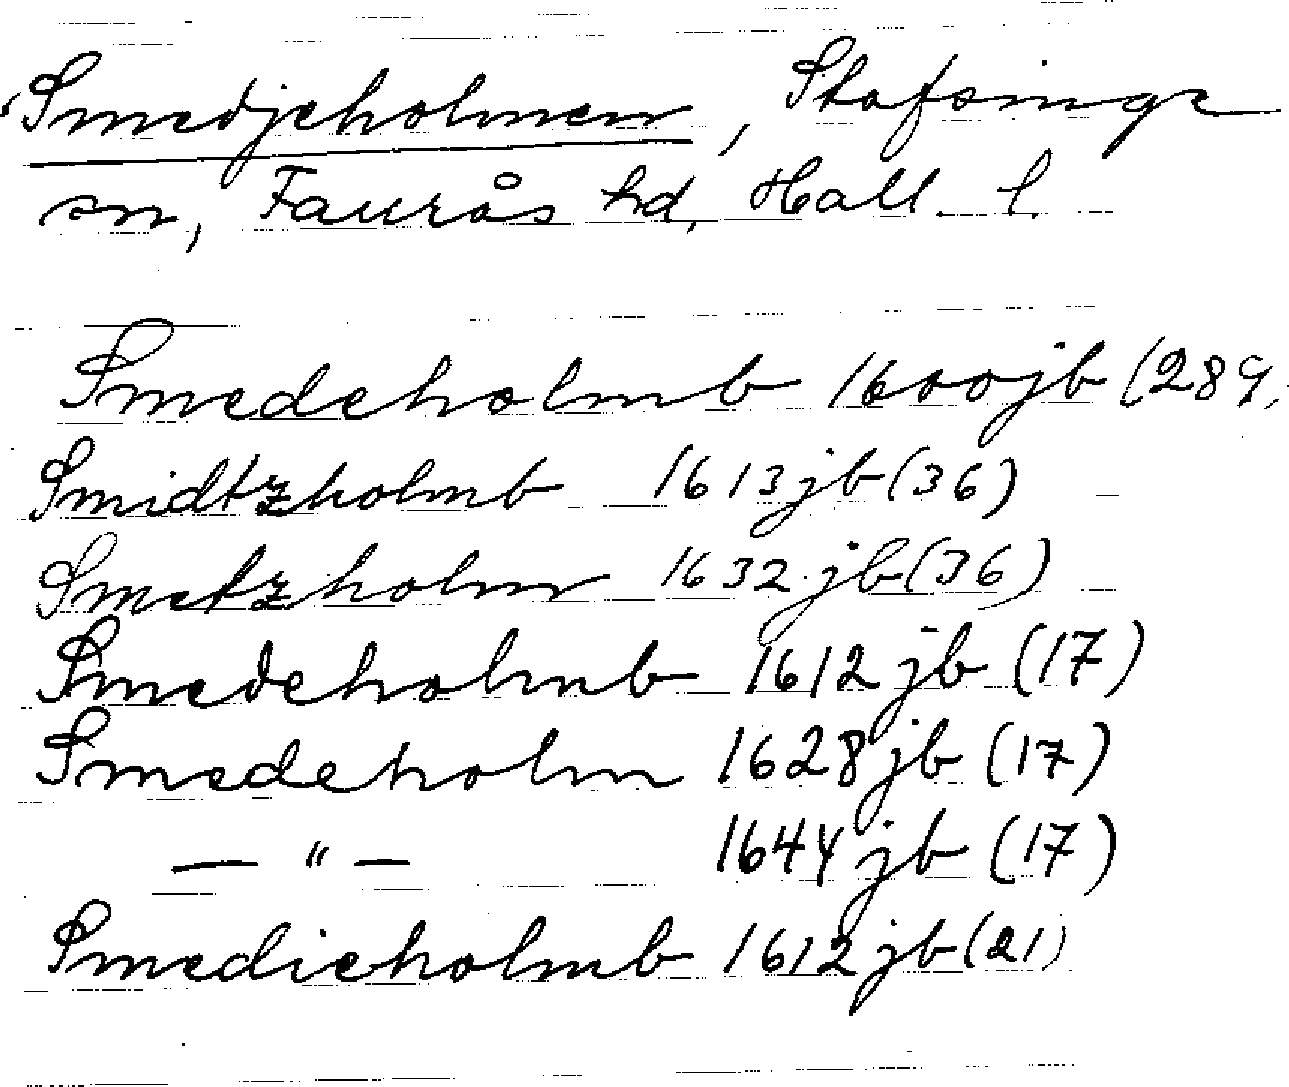 Smedjeholmen, Stafsinge
sn, Faurås hd, Hall. l.
Smedeholmb 1600 jb (289,
Smidtzholmb 1613 jb (36)
Smetzholm 1632 jb (36)
Smedeholmb 1612 jb (17)
Smedeholm 1628 jb (17)
— " — 1644 jb (17)
Smedieholmb 1612 jb (21)